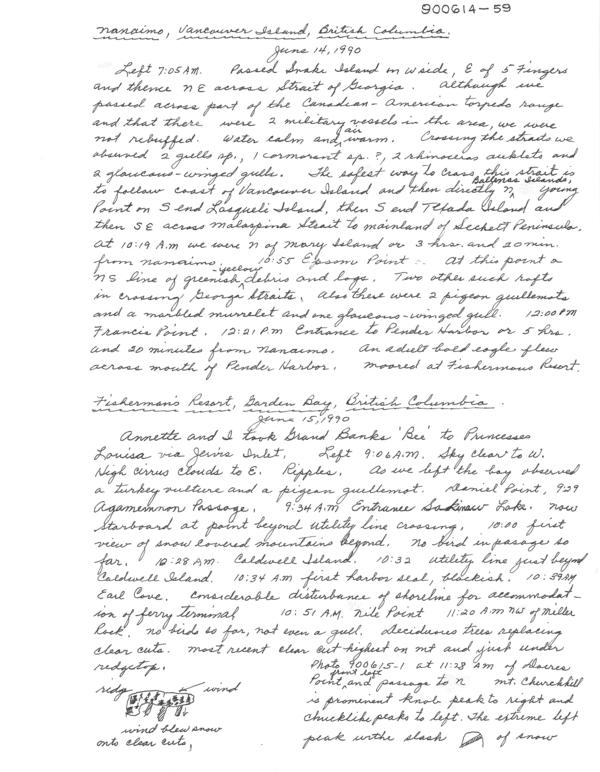 900614-59
Nanaimo, Vancouver Island, British Columbia.
June 14, 1990
Left 7:05 AM. Passed Snake Island on W side, E of 5 Fingers
and thence NE across Strait of Georgia. Although we
passed across part of the Canadian-American torpedo range
and that there were 2 military vessels in the area, we were
not rebuffed. Water calm and air warm. Crossing the straits we
observed 2 gulls sp., 1 cormorant sp.?, 2 rhinoceros auklets and
2 glaucous-winged gulls. The safest way to cross this strait is
to follow coast of Vancouver Island and then directly N Ballenas Islands, young
Point on S end Lasqueti Island, then S end Texada Island and
then SE across Malaspina Strait to mainland of Sechelt Peninsula.
At 10:19 AM we were N of Mary Island or 3 hrs. and 20 min.
from Nanaimo. 10:55 Epsom Point. At this point a
NS line of greenish-yellow debris and logs. Two other such rafts
in crossing George Straits. Also there were 2 pigeon guillemots
and a marbled murrelet and one glaucous-winged gull. 12:00 PM
Francis Point. 12:21 PM Entrance to Pender Harbor or 5 hrs.
and 20 minutes from Nanaimo. An adult bald eagle flew
across mouth of Pender Harbor. Moored at Fishermans Resort.
Fisherman's Resort, Garden Bay, British Columbia.
June 15, 1990
Annette and I took Grand Banks 'Bee' to Princesses
Louisa via Jervis Inlet. Left 9:06 A.M. Sky clear to W.
High cirrus clouds to E. Ripples. As we left the bay observed
a turkey vulture and a pigeon guillemot. Daniel Point, 9:29
Agamemnon Passage. 9:34 A.M Entrance Sakinaw Lake. Now
starboard at point beyond utility line crossing. 10:00 first
view of snow covered mountains beyond. No bird in passage so
far. 10:28 AM. Caldwell Island. 10:32 utility line just beyond
Caldwell Island. 10:34 AM first harbor seal, blackish. 10:39 AM
Earl Cove. Considerable disturbance of shoreline for accommodat-
ion of ferry terminal 10:51 A.M. Nile Point 11:20 AM NW of Miller
Rock. No birds so far, not even a gull. Deciduous trees replacing
clear cuts. Most recent clear cut highest on mt and just under
ridgetop.
ridge wind
wind blew snow
onto clear cuts,
Photo 900615-1 at 11:28 AM of Dacres
Point, front left and passage to N Mt. Churchhill
is prominent knob peak to right and
chucklike peaks to left. The extreme left
peak with slash of snow